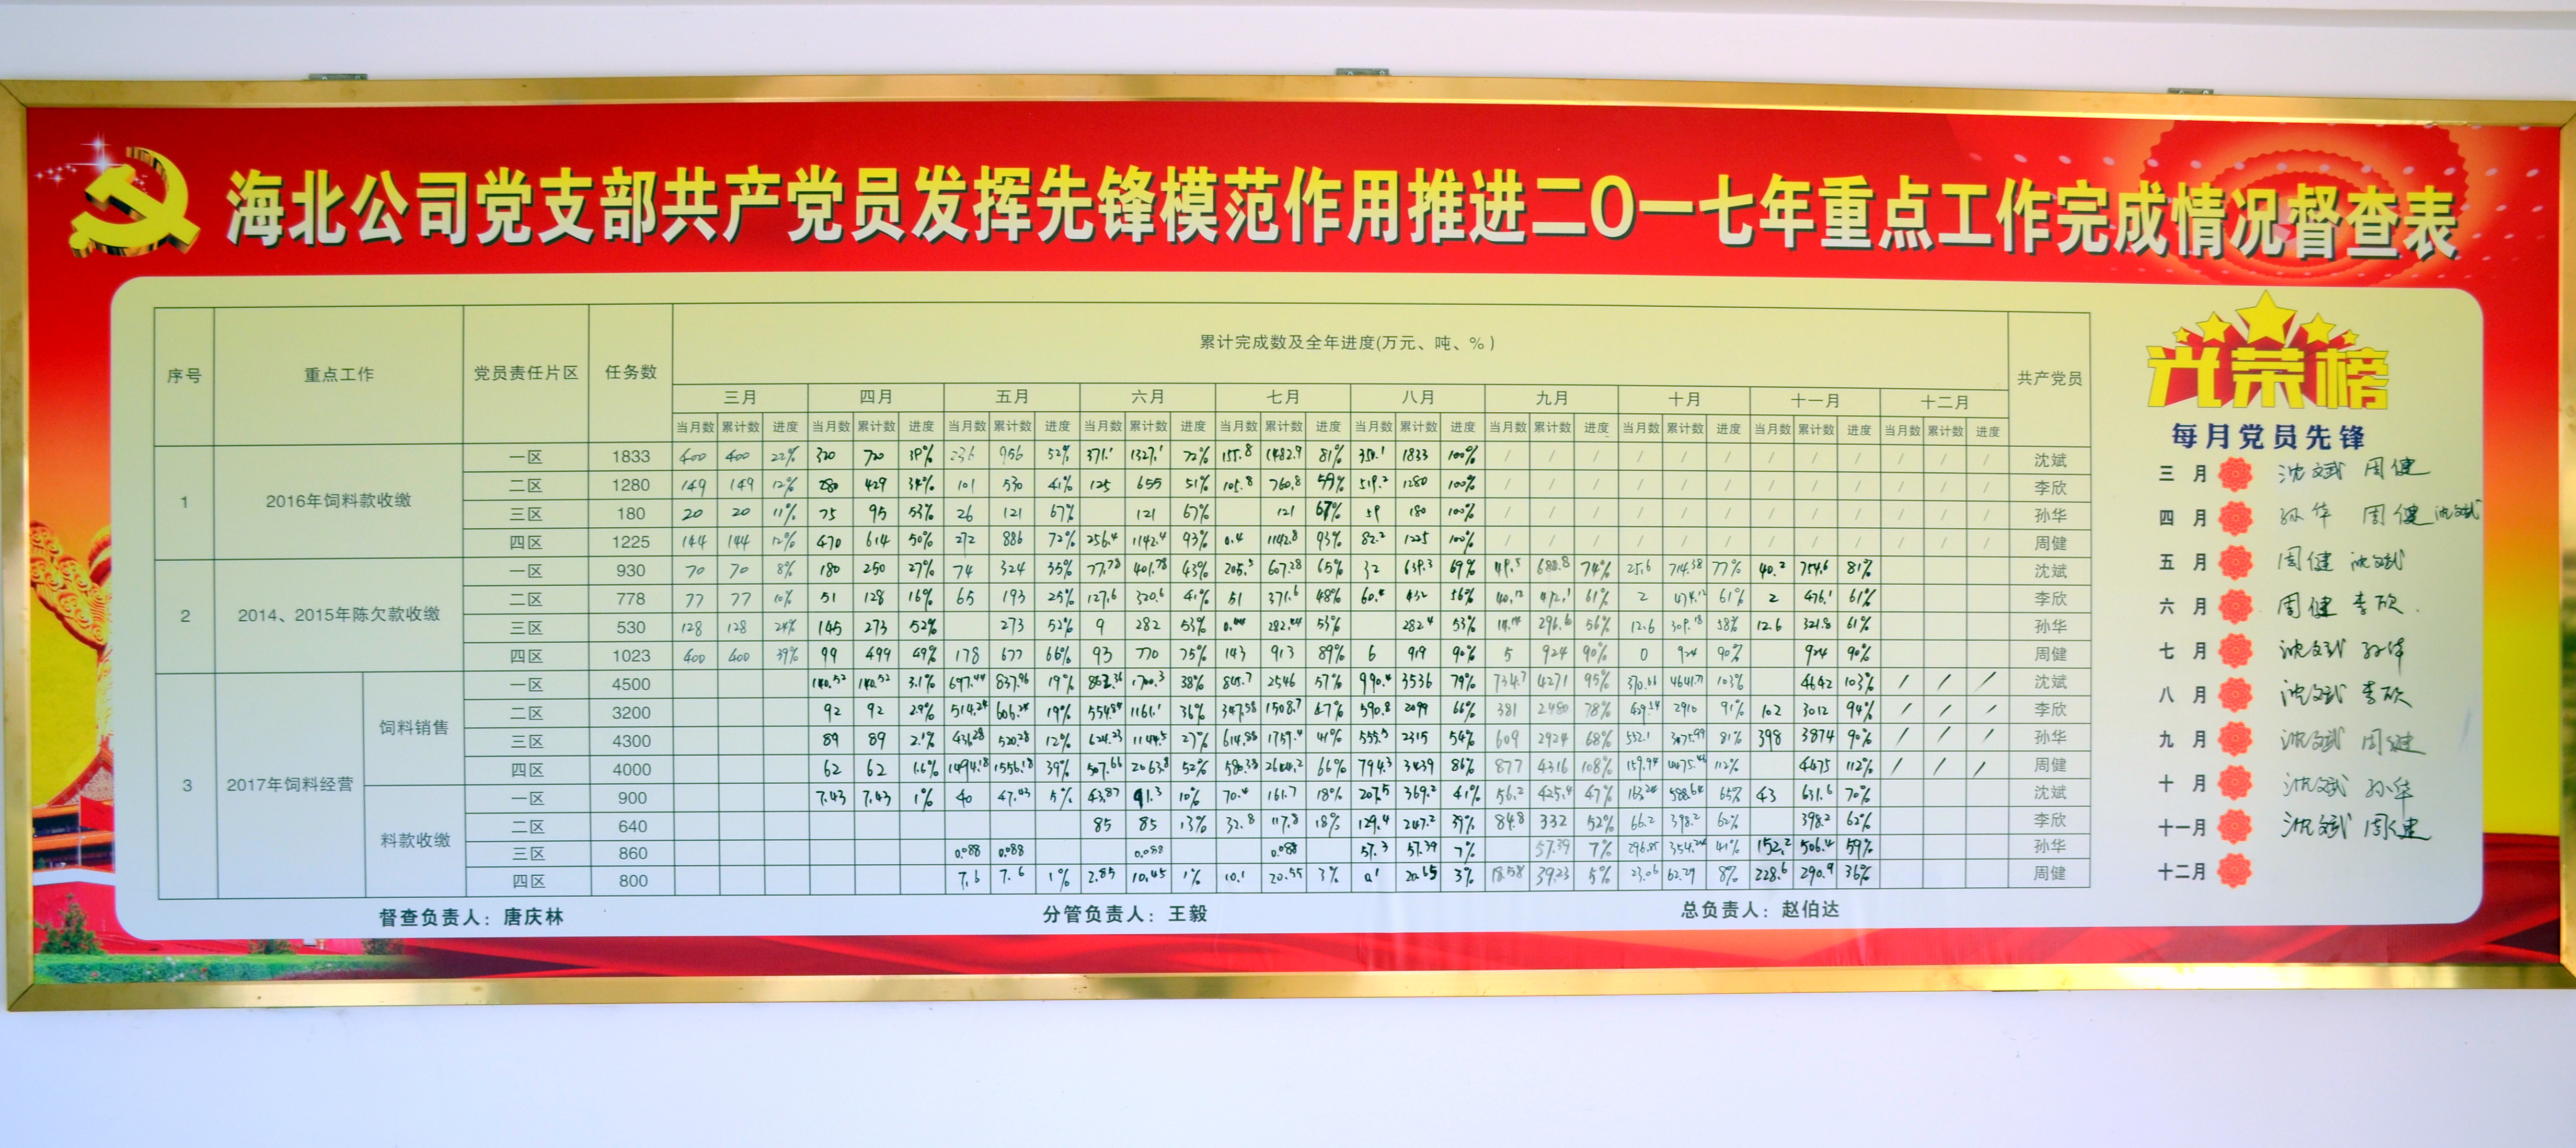 海北公司党支部共产党员发挥先锋模范作用推进二〇一七年重点工作完成情况督查表
序号 重点工作 党员责任片区 任务数 累计完成数及全年进度(万元、吨、%) 共产党员
三月 四月 五月 六月 七月 八月 九月 十月 十一月 十二月
当月数 累计数 进度 当月数 累计数 进度 当月数 累计数 进度 当月数 累计数 进度 当月数 累计数 进度 当月数 累计数 进度 当月数 累计数 进度 当月数 累计数 进度 当月数 累计数 进度 当月数 累计数 进度
1 2016年饲料款收缴
一区 1833 400 400 22% 320 720 39% 236 956 52% 371.1 1327.1 72% 155.8 1482.9 81% 350.1 1833 100% / / / / / / / / / / / / 沈斌
二区 1280 149 149 12% 280 429 34% 101 530 41% 125 655 51% 105.8 760.8 59% 519.2 1280 100% / / / / / / / / / / / / 李欣
三区 180 20 20 11% 75 95 53% 26 121 67% 121 67% 121 67% 59 180 100% / / / / / / / / / / / / 孙华
四区 1225 144 144 12% 470 614 50% 272 886 72% 256.4 1142.4 93% 0.4 1142.8 93% 82.2 1225 100% / / / / / / / / / / / / 周健
2 2014、2015年陈欠款收缴
一区 930 70 70 8% 180 250 27% 74 324 35% 77.78 401.78 43% 205.5 607.28 65% 32 639.3 69% 49.5 688.8 74% 25.6 714.38 77% 40.2 754.6 81% 沈斌
二区 778 77 77 10% 51 128 16% 65 193 25% 127.6 320.6 41% 51 371.6 48% 60.4 432 56% 40.12 472.1 61% 2 474.12 61% 2 476.1 61% 李欣
三区 530 128 128 24% 145 273 52% 273 52% 9 282 53% 0.44 282.44 53% 282.4 53% 14.14 296.6 56% 12.6 309.18 58% 12.6 321.8 61% 孙华
四区 1023 400 400 39% 99 499 49% 178 677 66% 93 770 75% 143 913 89% 6 919 90% 5 924 90% 0 924 90% 924 90% 周健
3 2017年饲料经营
饲料销售
一区 4500 140.52 140.52 3.1% 697.44 837.96 19% 862.36 1700.3 38% 845.7 2546 57% 990.4 3536 79% 734.7 4271 95% 370.66 4641.71 103% 4642 103% / / / 沈斌
二区 3200 92 92 2.9% 514.24 606.24 19% 554.84 1161.1 36% 347.58 1508.7 47% 590.8 2099 66% 381 2480 78% 429.54 2910 91% 102 3012 94% / / / 李欣
三区 4300 89 89 2.1% 431.28 520.28 12% 624.23 1144.5 27% 614.88 1759.4 41% 555.5 2315 54% 609 2924 68% 552.1 3475.99 81% 398 3874 90% / / / 孙华
四区 4000 62 62 1.6% 1494.18 1556.18 39% 507.66 2063.8 52% 580.38 2644.2 66% 794.3 3439 86% 877 4316 108% 159.94 4475.46 112% 4475 112% / / / 周健
料款收缴
一区 900 7.43 7.43 1% 40 47.43 5% 43.87 91.3 10% 70.4 161.7 18% 207.5 369.2 41% 56.2 425.4 47% 163.24 588.64 65% 43 631.6 70% 沈斌
二区 640 85 85 13% 32.8 117.8 18% 129.4 247.2 39% 84.8 332 52% 66.2 398.2 62% 398.2 62% 李欣
三区 860 0.088 0.088 0.088 0.088 57.3 57.39 7% 57.39 7% 296.85 354.24 41% 152.2 506.4 59% 孙华
四区 800 7.6 7.6 1% 2.85 10.45 1% 10.1 20.55 3% 0.1 20.65 3% 18.58 39.23 5% 23.06 62.29 8% 228.6 290.9 36% 周健
督查负责人：唐庆林 分管负责人：王毅 总负责人：赵伯达
光荣榜
每月党员先锋
三月 沈斌 周健
四月 孙华 周健 沈斌
五月 周健 沈斌
六月 周健 李欣
七月 沈斌 孙华
八月 沈斌 李欣
九月 沈斌 周健
十月 沈斌 孙华
十一月 沈斌 周健
十二月